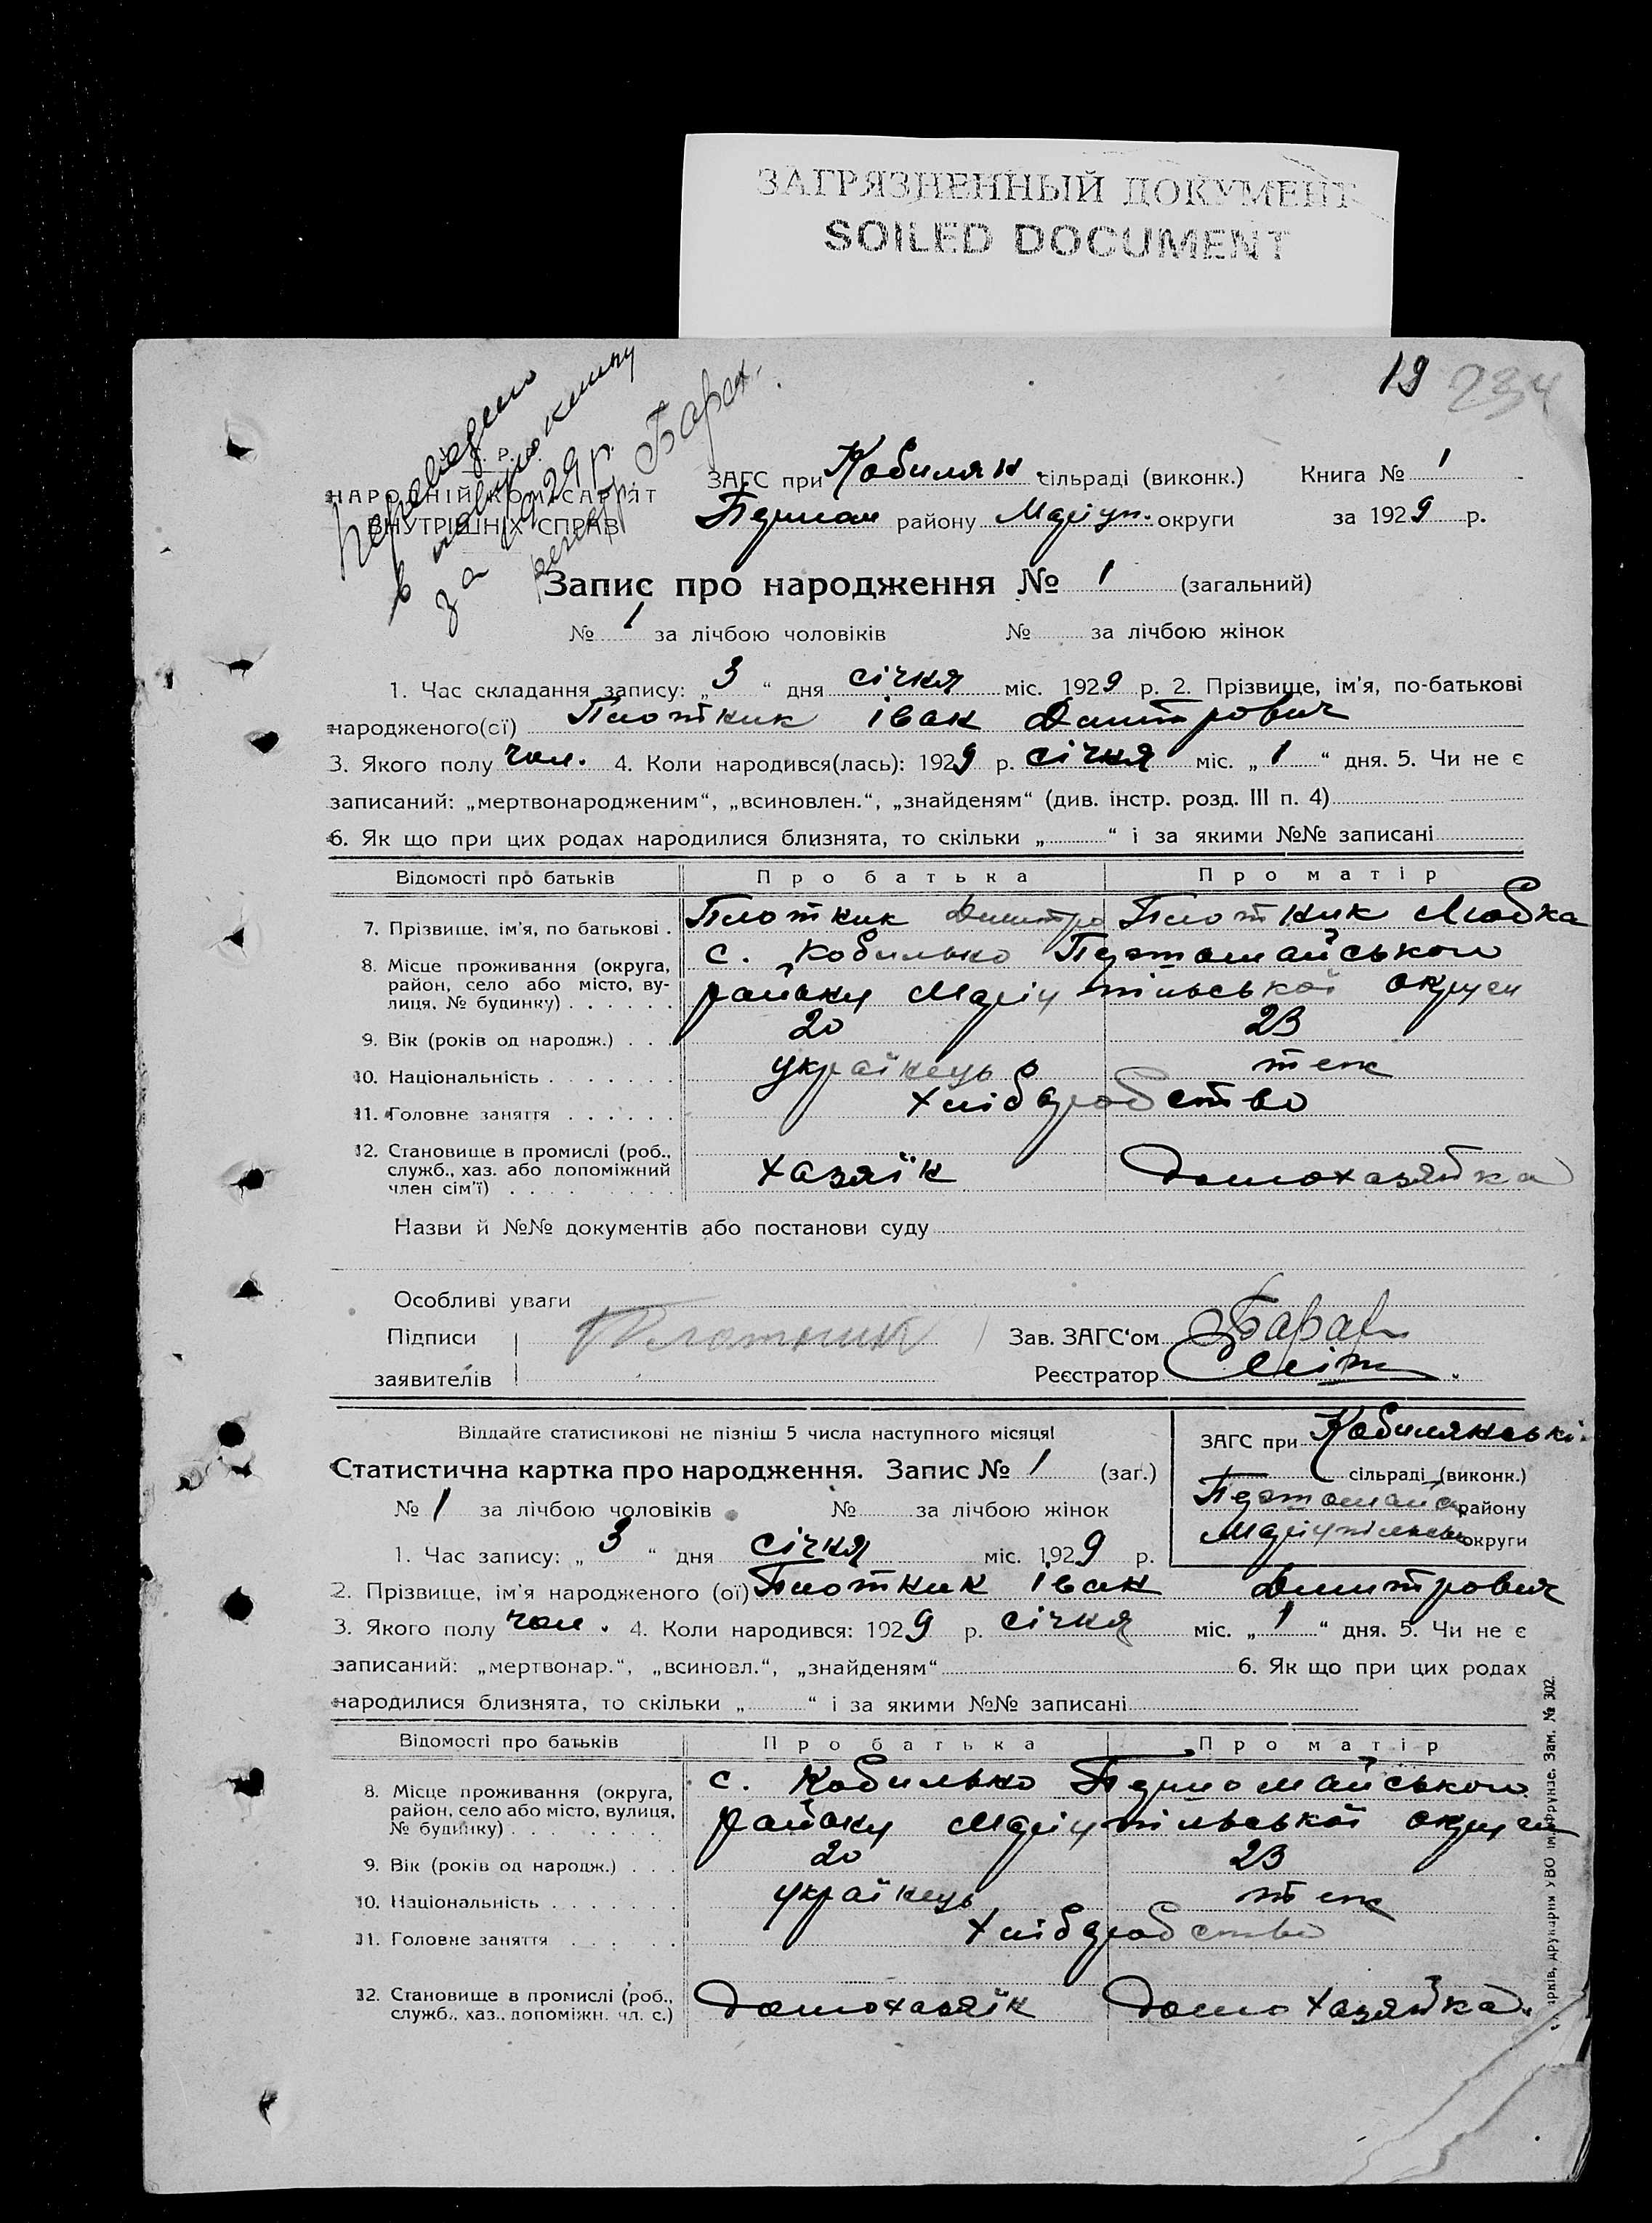 ЗАГРЯЗНЕННЫЙ ДОКУМЕНТ
SOILED DOCUMENT
19 234
Переведено
в нову книгу
за 1929 р.
Р.
НАРОДНІЙ КОМІСАРІЯТ
ВНУТРІШНІХ СПРАВ
ЗАГС при Кобиляк. сільраді (виконк.) Книга № 1
Першом району Маріуп. округи за 1929 р.
Запис про народження № 1 (загальний)
№ 1 за лічбою чоловіків № за лічбою жінок
1. Час складання запису: „3“ дня січня міс. 1929 р. 2. Прізвище, ім'я, по-батькові
народженого(ої) Плотник Іван Дмитрович
3. Якого полу чол. 4. Коли народився(лась): 1929 р. січня міс. „1“ дня. 5. Чи не є
записаний: „мертвонародженим“, „всиновлен.“, „знайденям“ (див. інстр. розд. III п. 4)
6. Як що при цих родах народилися близнята, то скільки „ “ і за якими №№ записані
Відомості про батьків Про батька Про матір
7. Прізвище, ім'я, по батькові . Плотник Дмитро Плотник Любка
8. Місце проживання (округа, район, село або місто, вулиця, № будинку) с. Кобилько Першомайського
району Маріупільської округи
9. Вік (років од народж.) . . . 20 23
10. Національність українець теж
11. Головне заняття хліборобство
12. Становище в промислі (роб., служб., хаз. або допоміжний член сім'ї) хазяїн домохазяйка
Назви й №№ документів або постанови суду
Особливі уваги
Підписи Плотник Зав. ЗАГС'ом
заявителів Реєстратор
Віддайте статистикові не пізніш 5 числа наступного місяця!
Статистична картка про народження. Запис № 1 (заг.)
ЗАГС при Кобиляковскі
сільраді (виконк.)
Першомайс району
Маріупільськ округи
№ 1 за лічбою чоловіків № за лічбою жінок
1. Час запису: „3“ дня січня міс. 1929 р.
2. Прізвище, ім'я народженого (ої) Плотник Іван Дмитрович
3. Якого полу чол. 4. Коли народився: 1929 р. січня міс. „1“ дня. 5. Чи не є
записаний: „мертвонар.“, „всиновл.“, „знайденям“ 6. Як що при цих родах
народилися близнята, то скільки „ “ і за якими №№ записані
Відомості про батьків Про батька Про матір
8. Місце проживання (округа, район, село або місто, вулиця, № будинку) с. Кобилько Першомайського
району Маріупільської округи
9. Вік (років од народж.) . . . 20 23
10. Національність українець теж
11. Головне заняття хліборобство
12. Становище в промислі (роб., служб., хаз., допоміжн. чл. с.) домохазяїн домохазяйка
друкарня УВО ім. Фрунзе. Зам. № 302.